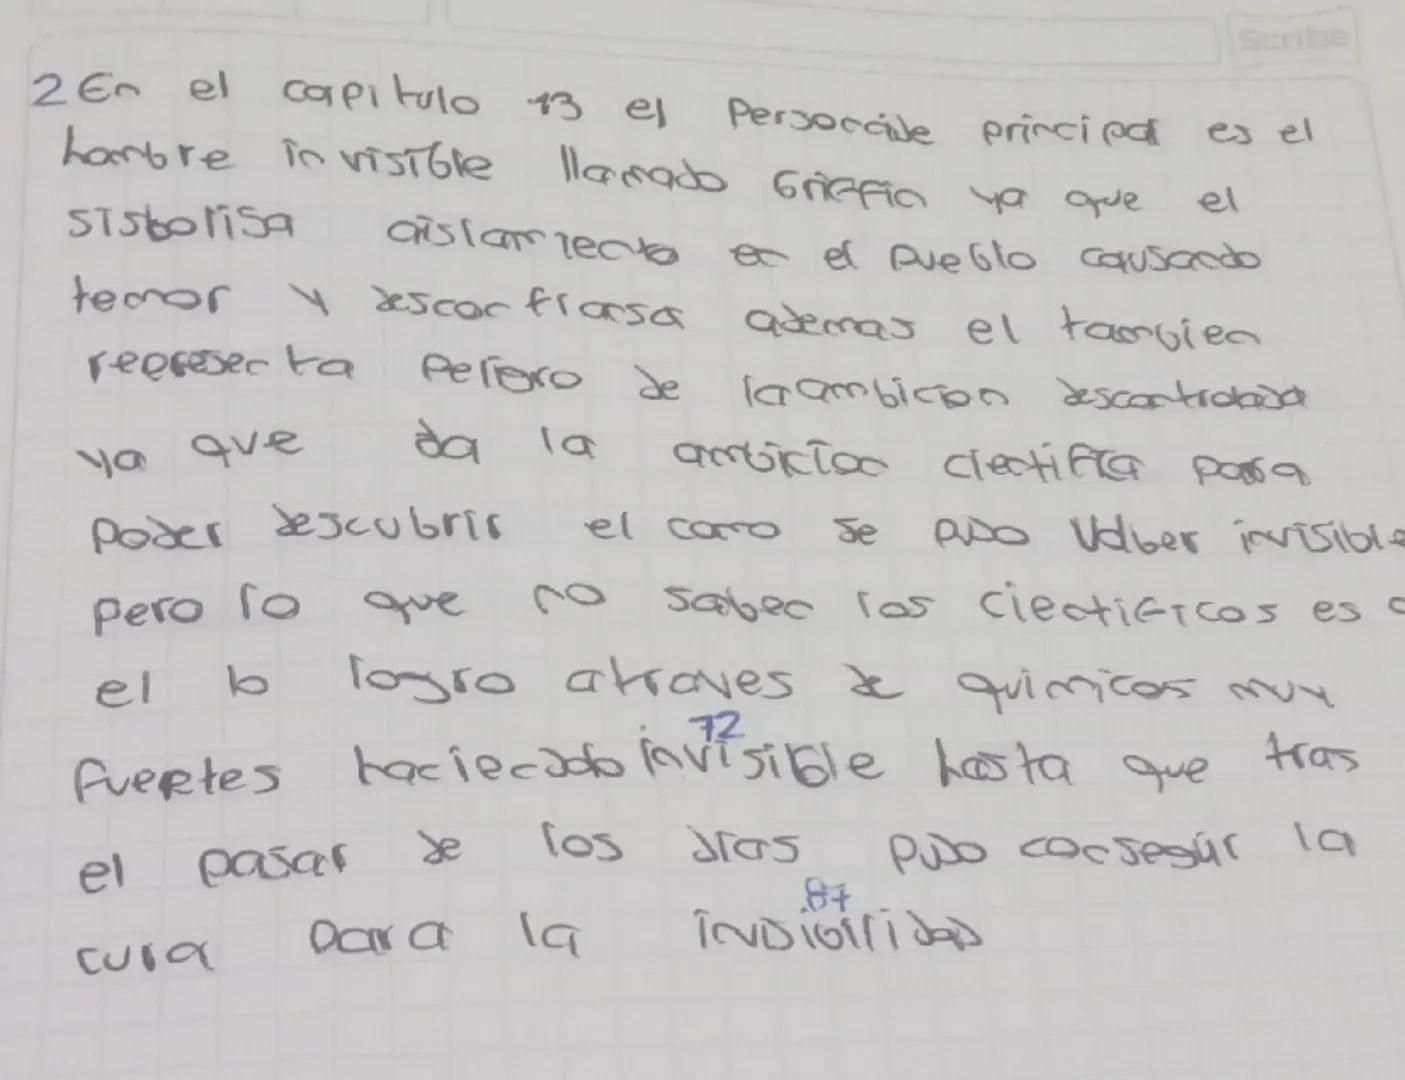 Scribe
2 En el capitulo 13 el Personaje principal es el
hombre invisible llamado Griffin ya que el
sisbolisa aislamiento en el pueblo causando
temor y desconfiansa ademas el tambien
representa peligro de la ambicion descontrolada
ya que da la ambicion cientifica para
poder descubrir el como se pudo volber invisible
pero lo que no saben los cientificos es
el lo logro atraves de quimicos muy
72
fuertes haciendo invisible hasta que tras
el pasar de los dias pudo conseguir la
87
cura para la